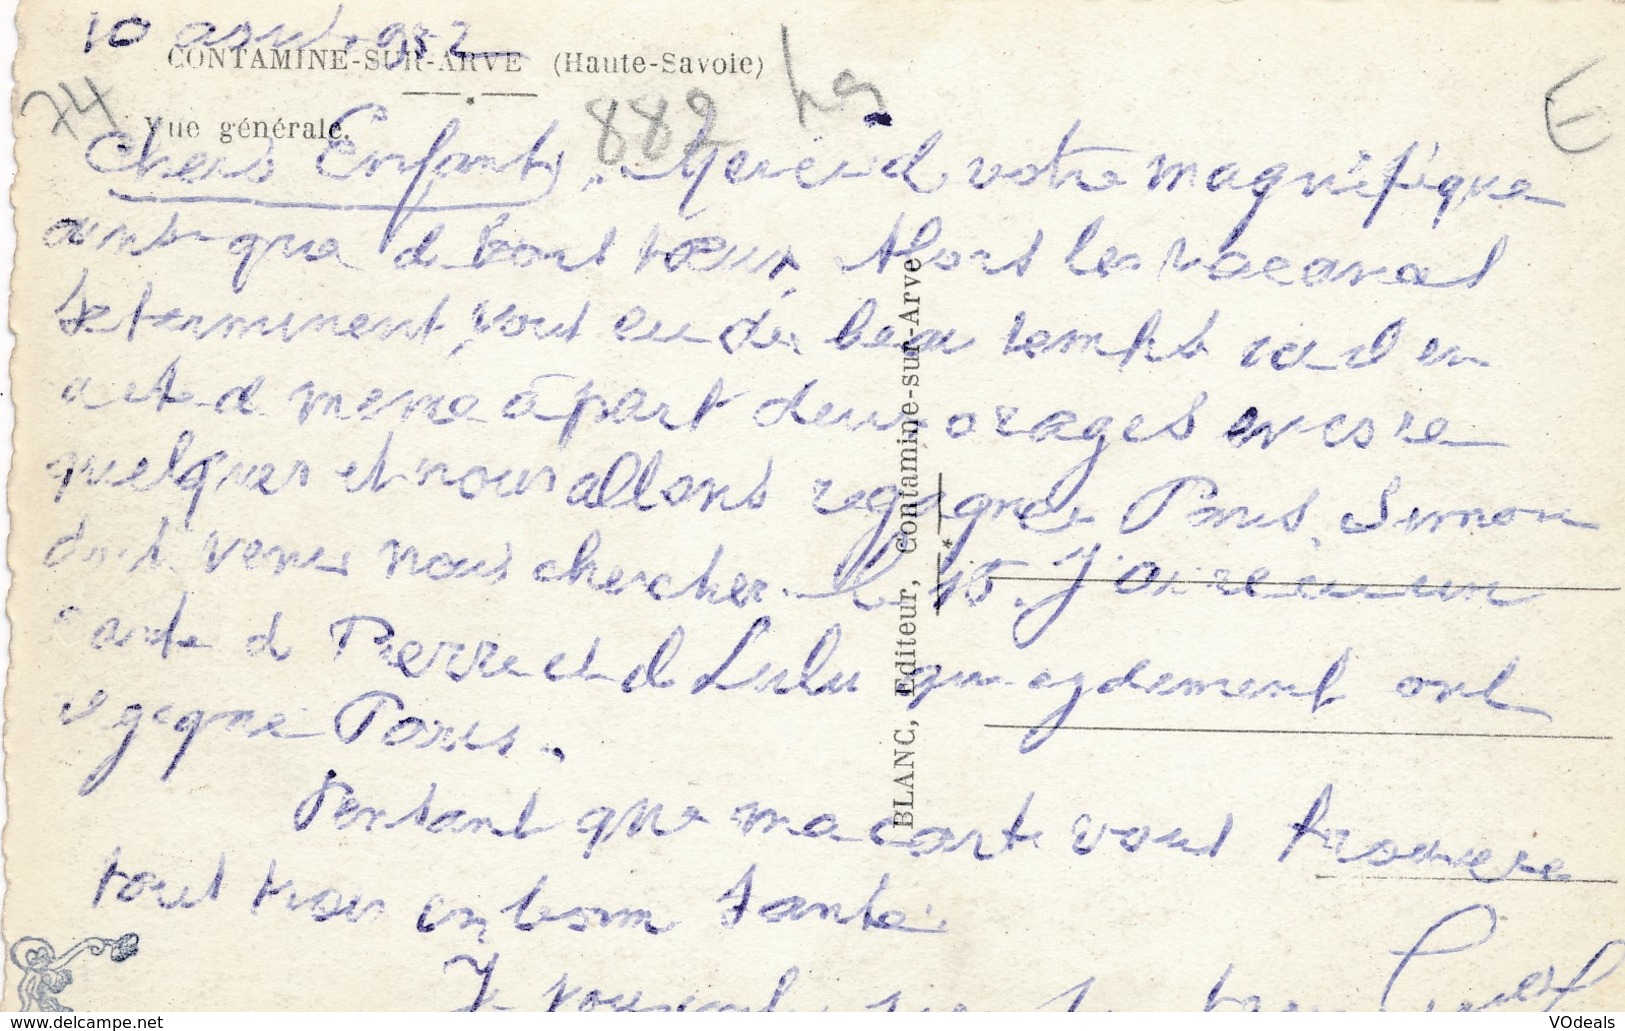 10 aout 1952
CONTAMINE-SUR-ARVE (Haute-Savoie)
74
Vue générale.
882
E
Chers Enfants. votre magnifique
de tout coeur. Alors les vacances
se terminent, vous eu du beau temps ici il en
a été de meme à part deux orages encore
quelques et nous allons regagner Paris. Simon
doit venir nous chercher le 15. J'ai recu un
carte de Pierre et de Lulu qui egalement ont
regagné Paris.
Pensant que ma carte vous trouvere
tout trois en bonn santé.
Je
BLANC, Editeur, Contamine-sur-Arve
VOdeals